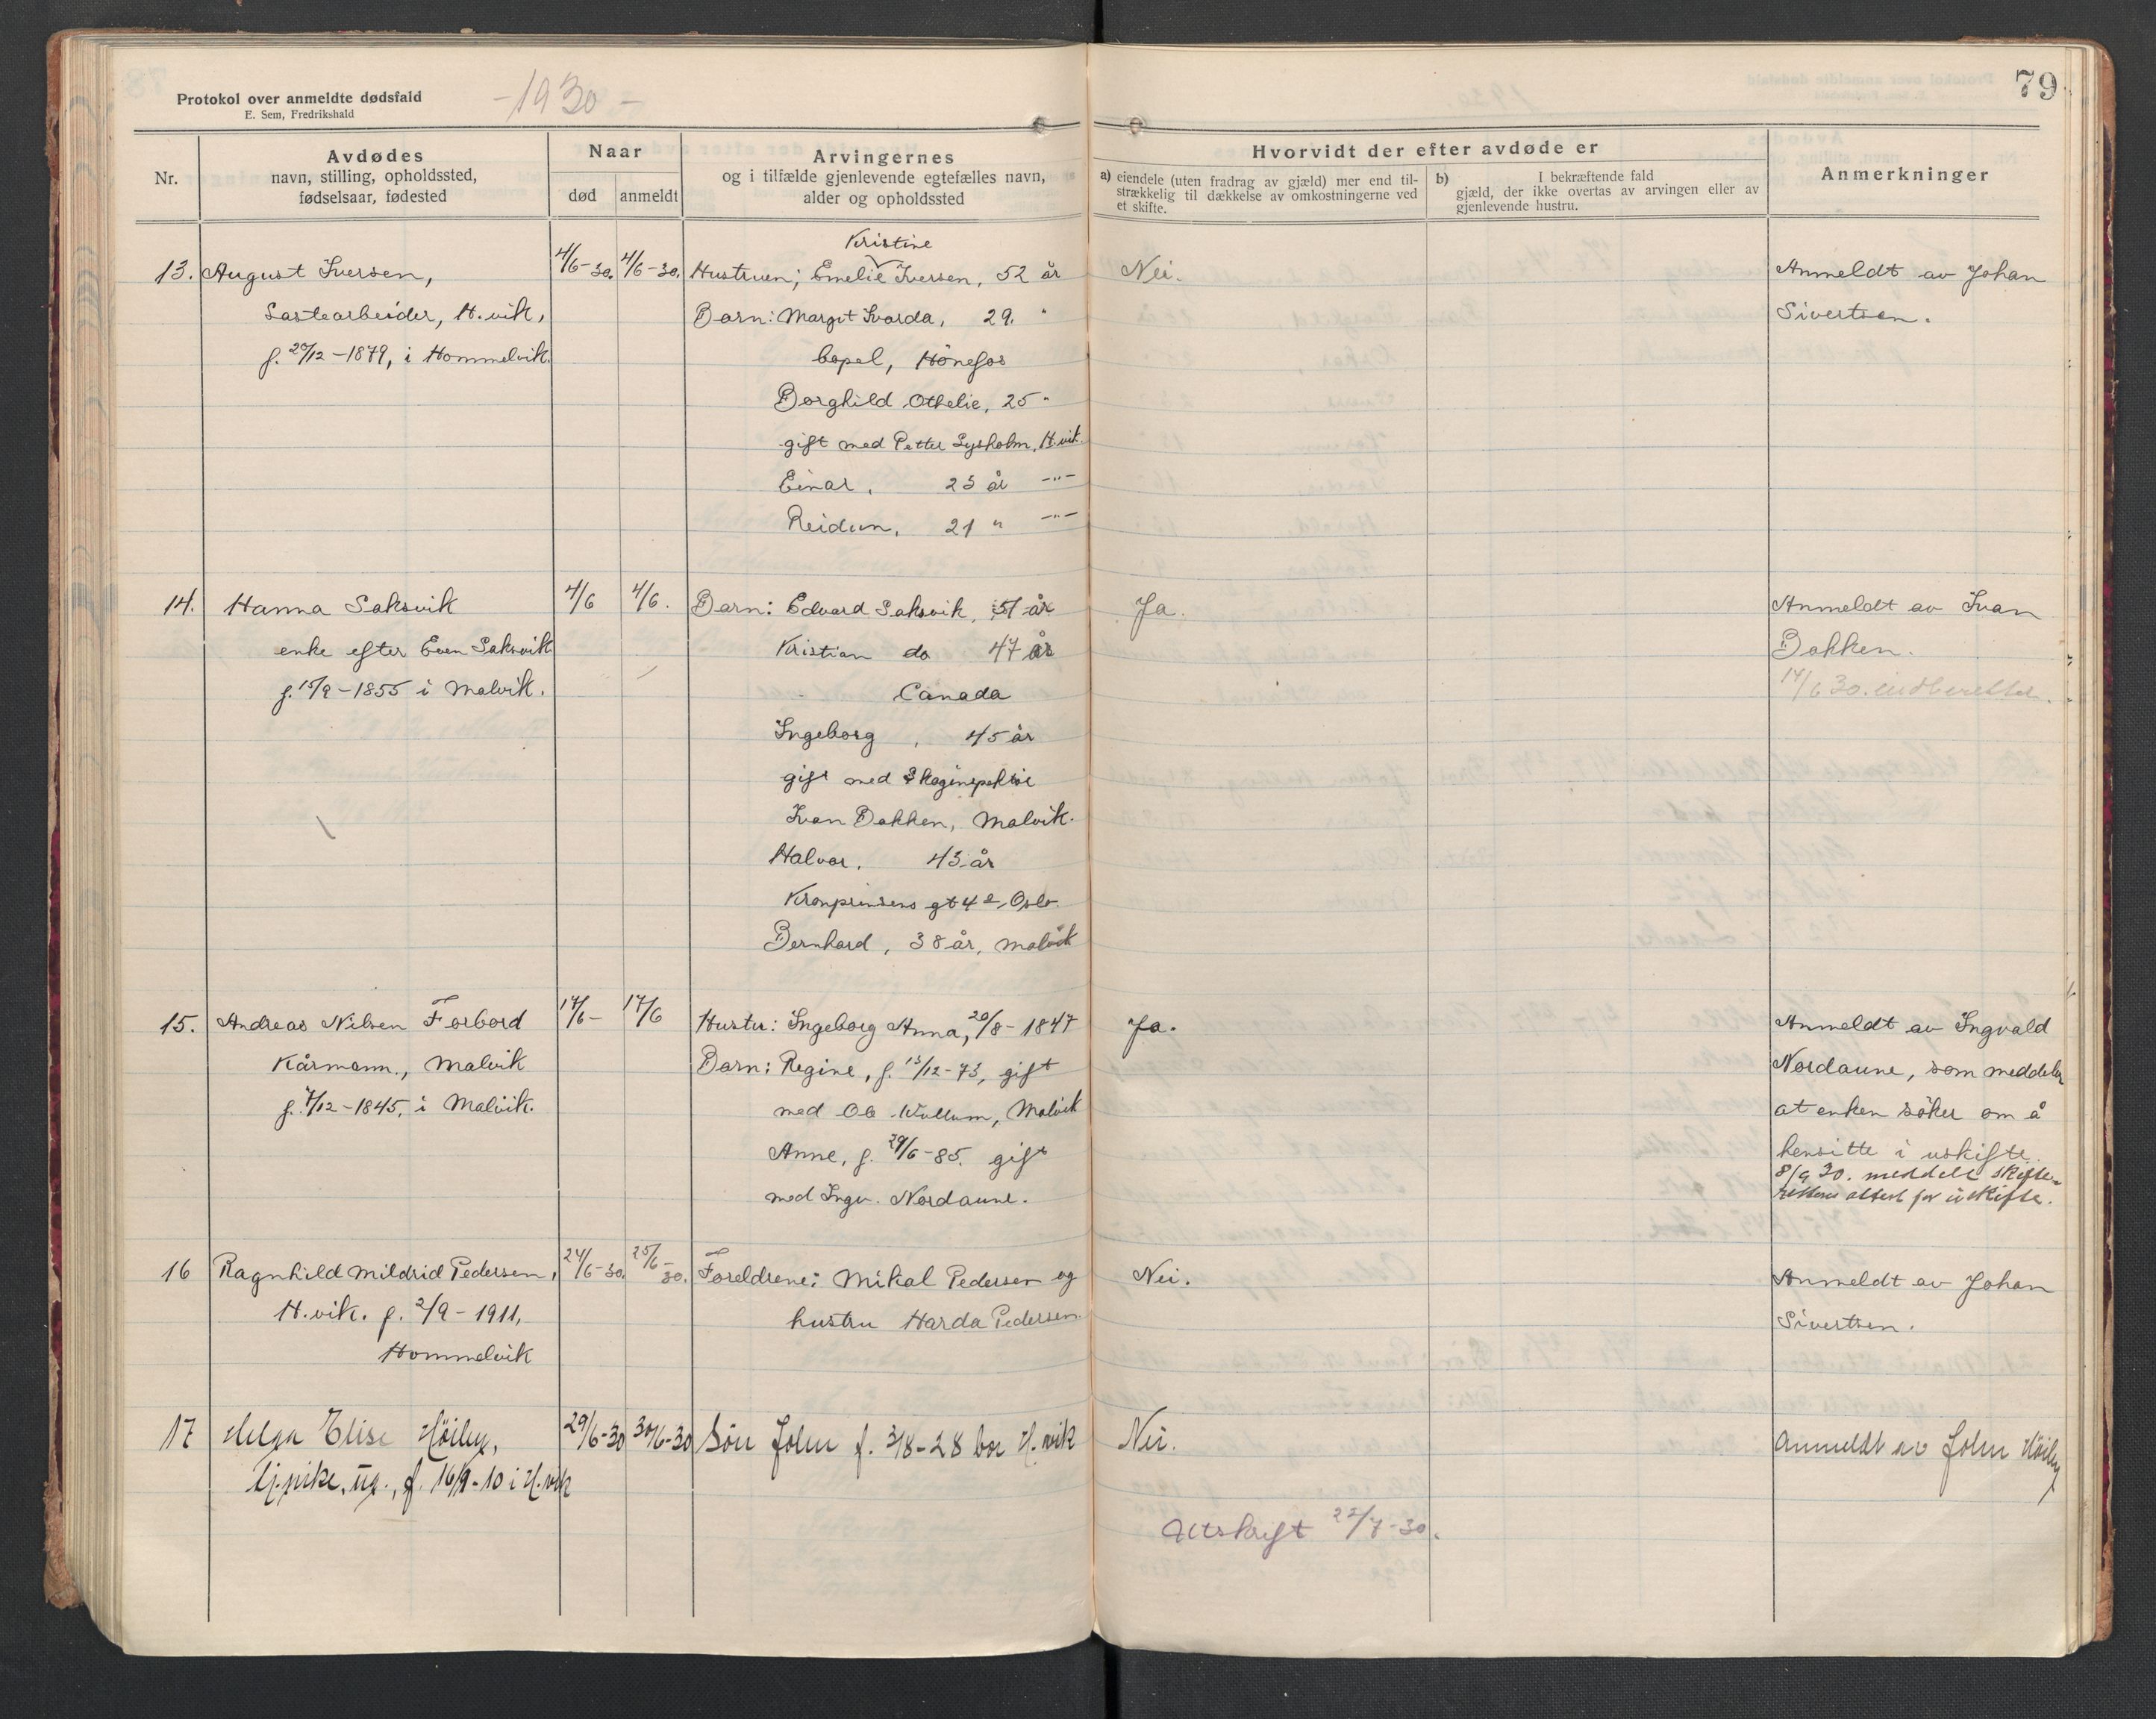 Protokol over anmeldte dødsfald
E. Sem, Fredrikshald
-1930-
79
Nr.
Avdødes
navn, stilling, opholdssted,
fødselsaar, fødested
Naar
død
anmeldt
Arvingernes
og i tilfælde gjenlevende egtefælles navn,
alder og opholdssted
Hvorvidt der efter avdøde er
a) eiendele (uten fradrag av gjæld) mer end til-
strækkelig til dækkelse av omkostningerne ved
et skifte.
b) I bekræftende fald
gjæld, der ikke overtas av arvingen eller av
gjenlevende hustru.
Anmerkninger
13. August Iversen,
Lastearbeider, H.vik,
f. 20/12-1879, i Hommelvik.
4/6-30. 4/6-30.
Kristine
Hustruen; Emelie Iversen, 52 år
Barn: Margit Svorda, 29. "
bopel, Hönefos
Borghild Othelie, 25 "
gift med Petter Lysholm, H.vik.
Einar, 23 år -"-
Reidun, 21 " -"-
Nei.
Anmeldt av Johan
Sivertsen.
14. Hanna Saksvik
enke efter Even Saksvik
f. 15/9-1855 i Malvik.
4/6 4/6.
Barn: Edvard Saksvik, 51 år
Kristian do 47 år
Canada
Ingeborg, 45 år
gift med Skoginspektör
Ivan Bakken, Malvik.
Halvor, 43 år
Kronprinsens gt 4, Oslo.
Bernhard, 38 år, Malvik
Ja.
Anmeldt av Ivan
Bakken.
14/6 30. innberettet.
15. Andreas Nilsen Forbord
Kårmann., Malvik
f. 7/12-1845, i Malvik.
17/6- 17/6
Hustr: Ingeborg Anna, 20/8-1847
Barn: Regine, f. 13/12-73, gift
med Ole Wullum, Malvik
Anne, f. 29/6-85. gift
med Ingv. Nordaune.
Ja.
Anmeldt av Ingvald
Nordaune, som meddeler
at enken söker om å
hensitte i uskifte.
8/9 30. meddelt skifte-
rettens attest for uskifte.
16 Ragnhild Mildrid Pedersen,
H.vik. f. 2/9-1911,
Hommelvik
24/6-30. 25/6-30.
Foreldrene: Mikal Pedersen og
hustru Harda Pedersen.
Nei.
Anmeldt av Johan
Sivertsen.
17 Helga Elise Höiby,
tj.pike, ug., f. 16/9-10 i H.vik
29/6-30 30/6-30
Sön John f. 3/8-28 bor H.vik
Nei.
Anmeldt av John Höiby
Utskrift 22/7-30.